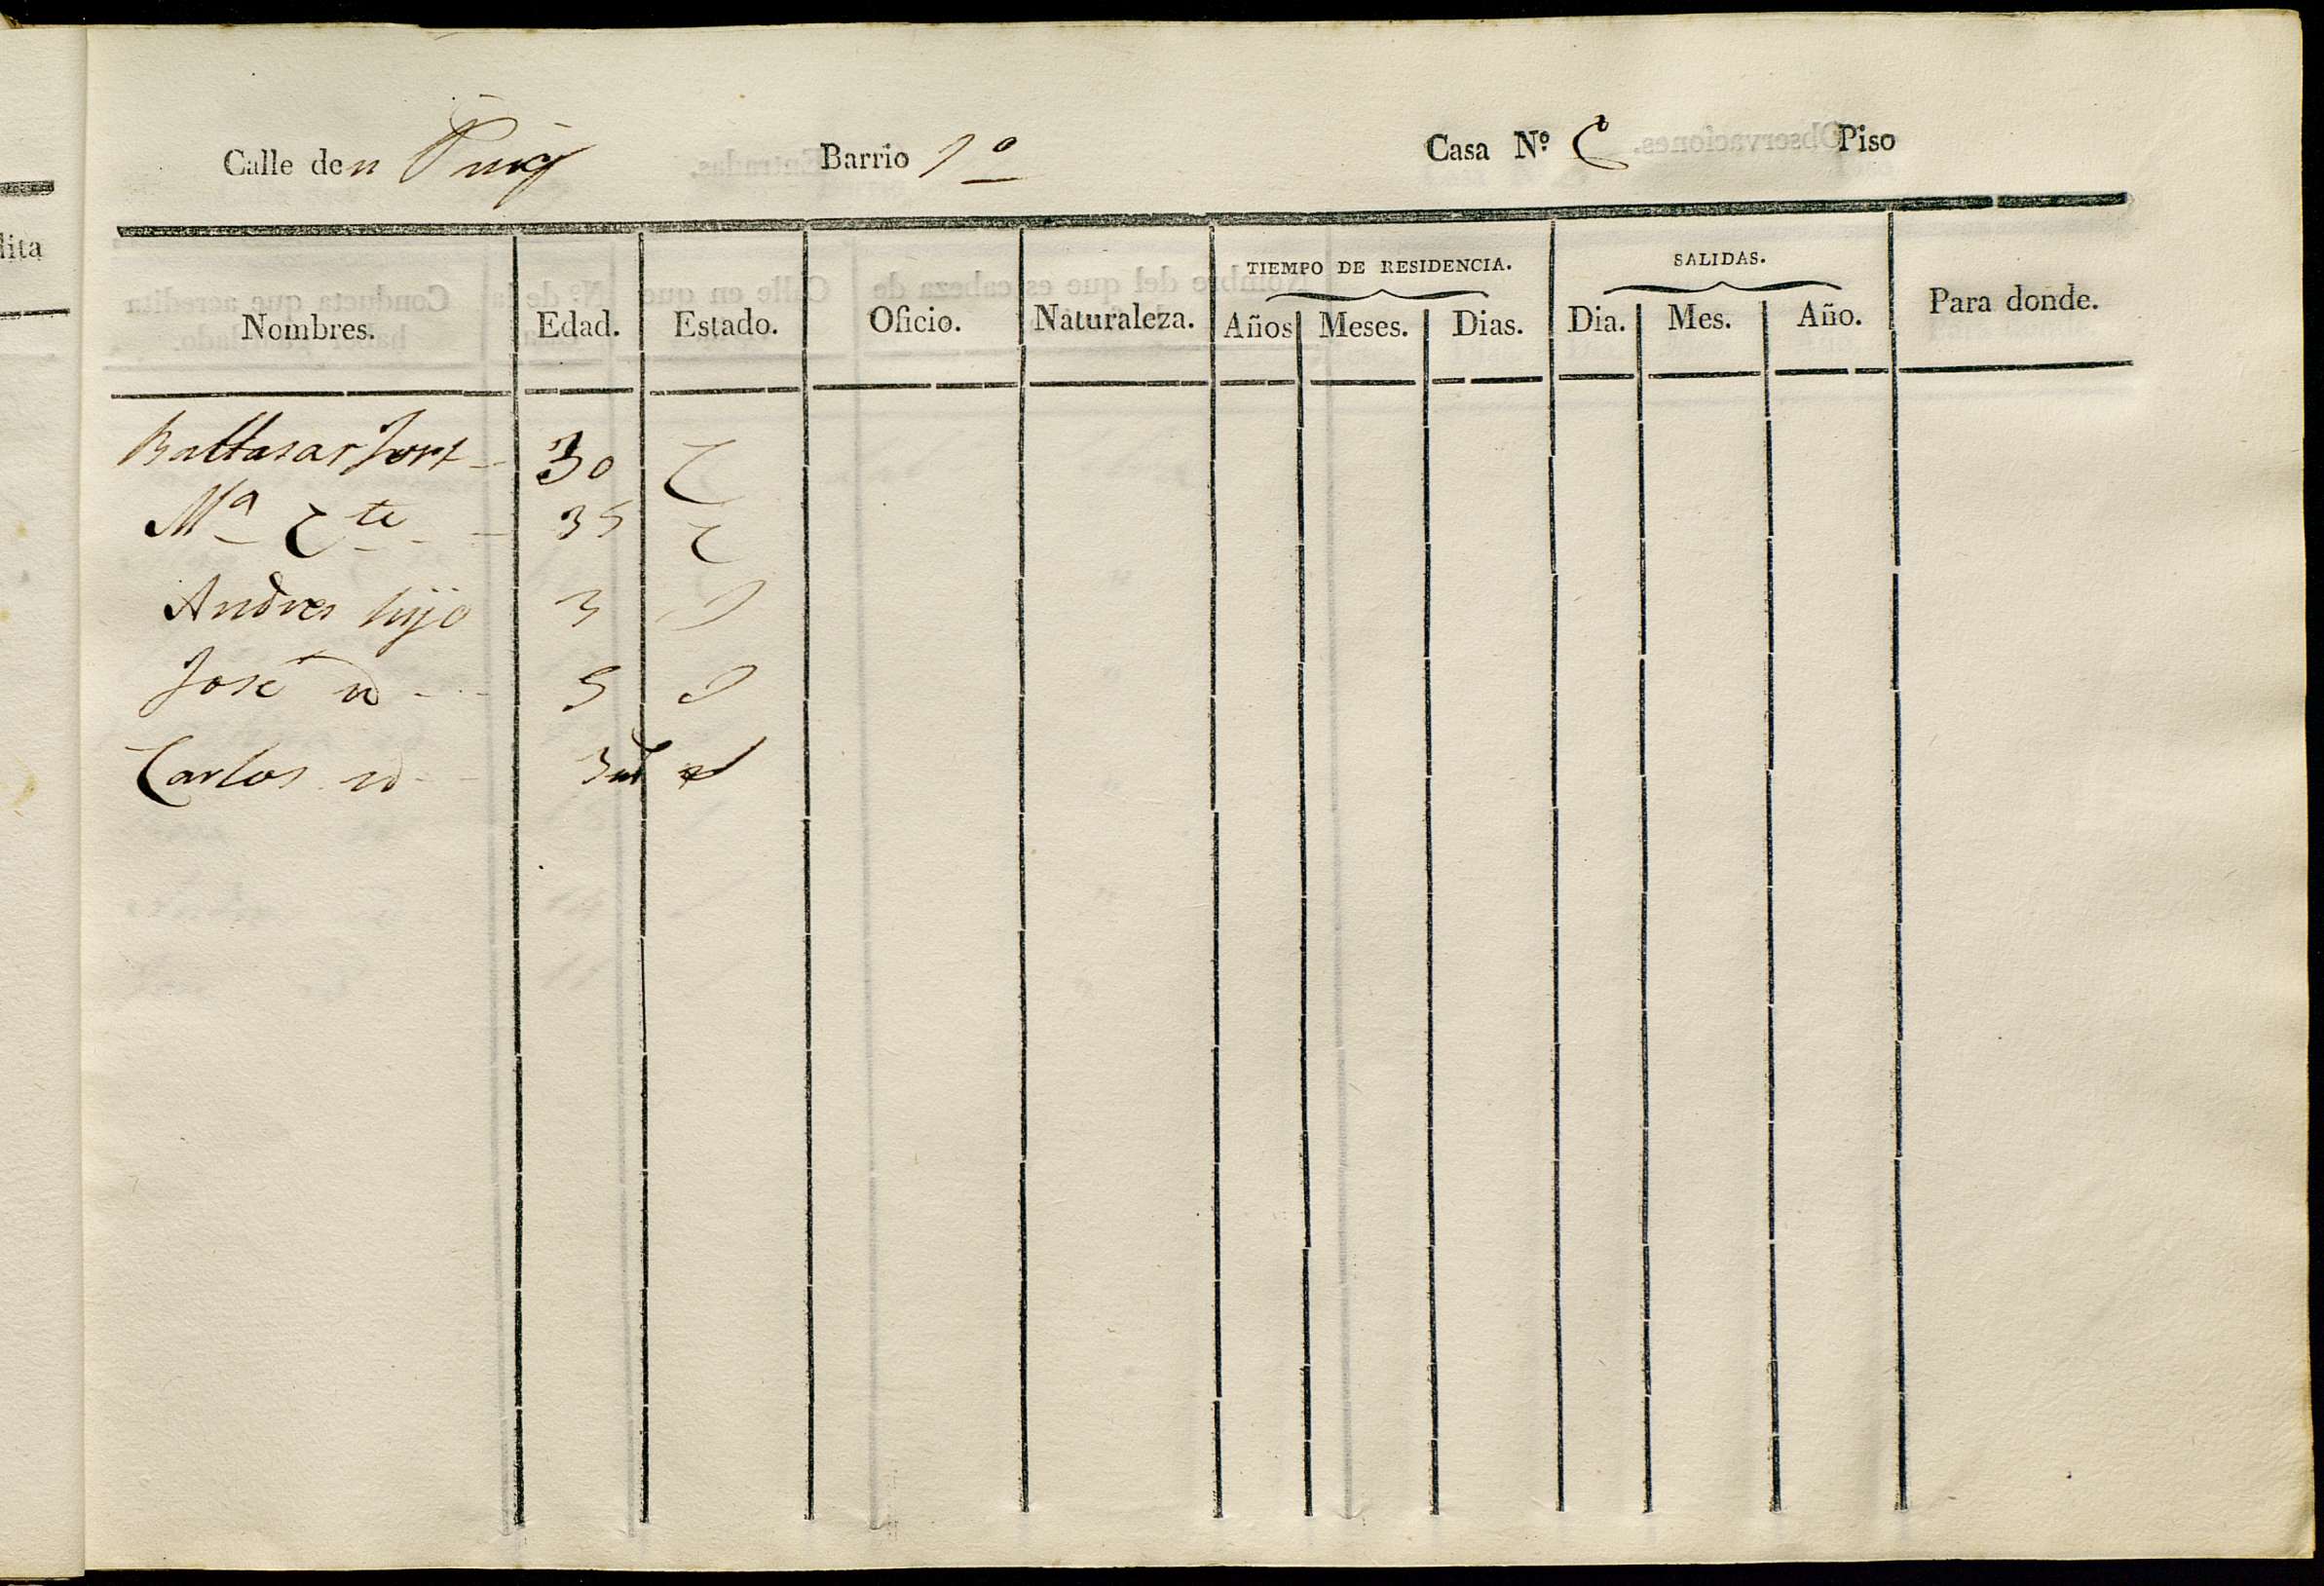 Calle den Puig Barrio 1º Casa Nº C Piso
TIEMPO DE RESIDENCIA. SALIDAS.
Nombres. Edad. Estado. Oficio. Naturaleza. Años Meses. Dias. Dia. Mes. Año. Para donde.
Baltasar Fort 30 C
Mª Cte 35 C
Andres hijo 3 S
José id 5 S
Carlos id 3
dita